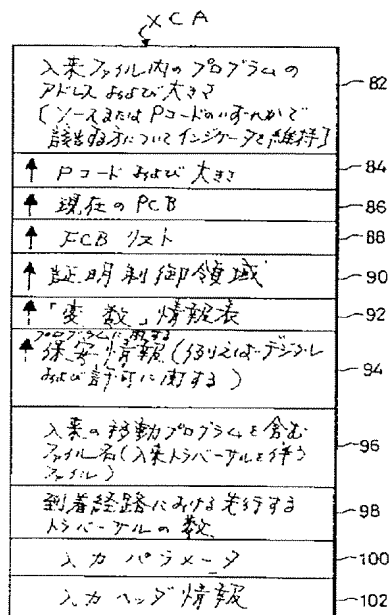 XCA
入来ファイル内のプログラムの
アドレスおよび大きさ
[ソースまたはPコードのいずれかで
該当する方についてインジケータを維持]
82
↑ Pコードおよび大きさ
84
↑ 現在のPCB
86
↑ FCBリスト
88
↑ 証明制御領域
90
↑ 「変数」情報表
92
プログラムに関する
↑ 保安情報(例えばデジタル
および許可に関する)
94
入来の移動プログラムを含む
ファイル名(入来トラバーサルを伴う
ファイル)
96
到着経路における先行する
トラバーサルの数
98
入力パラメータ
100
入力ヘッダ情報
102